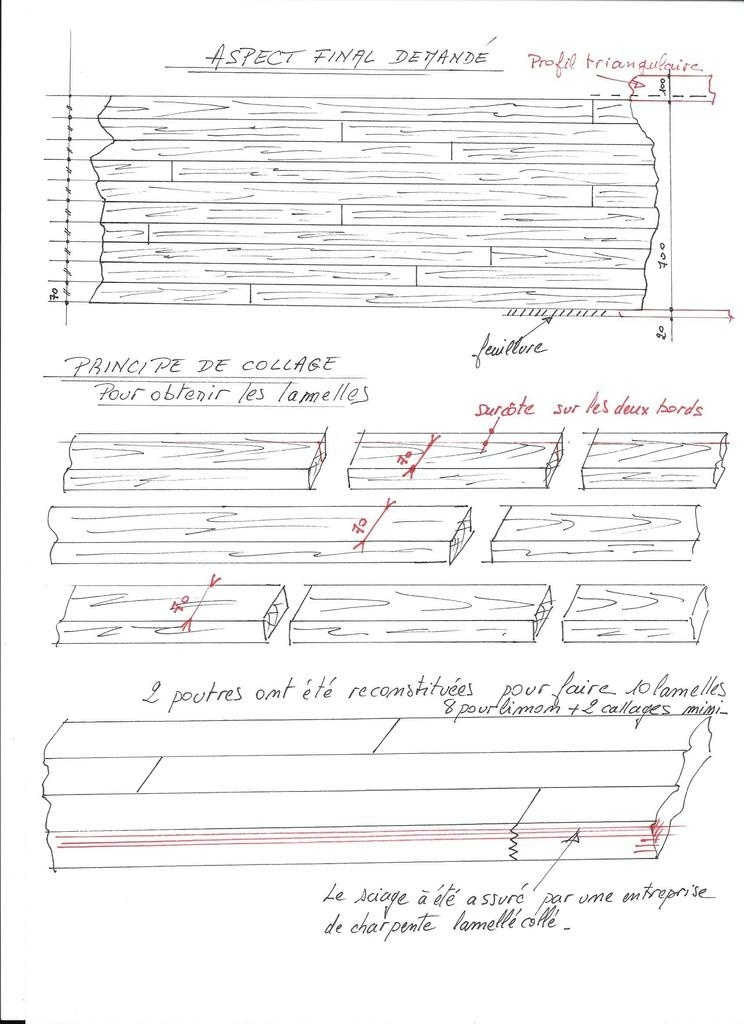 ASPECT FINAL DEMANDÉ
Profil triangulaire
100
700
70
20
feuillure
PRINCIPE DE COLLAGE
Pour obtenir les lamelles
surcôte sur les deux bords
70
70
70
2 poutres ont été reconstituées pour faire 10 lamelles
8 pour limon + 2 collages mini
Le sciage à été assuré par une entreprise
de charpente lamellé collé _